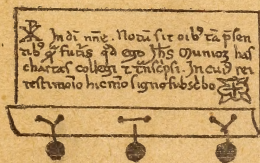 In dī nn̄e. Notū sit oībꝰ tā p̄sen
tibꝰ q̄ futis̄ qđ ego Jhs̄ Munioz has
chartas collegi ⁊ trn̄scpsi. In cuiꝰ rei
testimoīo hic meō signo subscbo